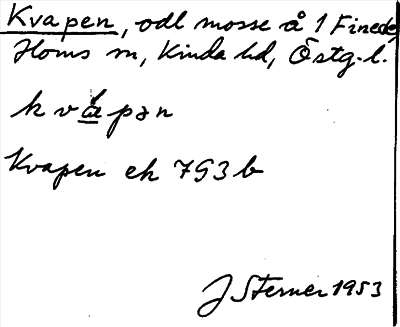 Kvapen, odl mosse å 1 Finede
Horns sn, Kinda hd, Östg. l.
kvåpən
Kvapen ek 7G3b
J Sterner 1953